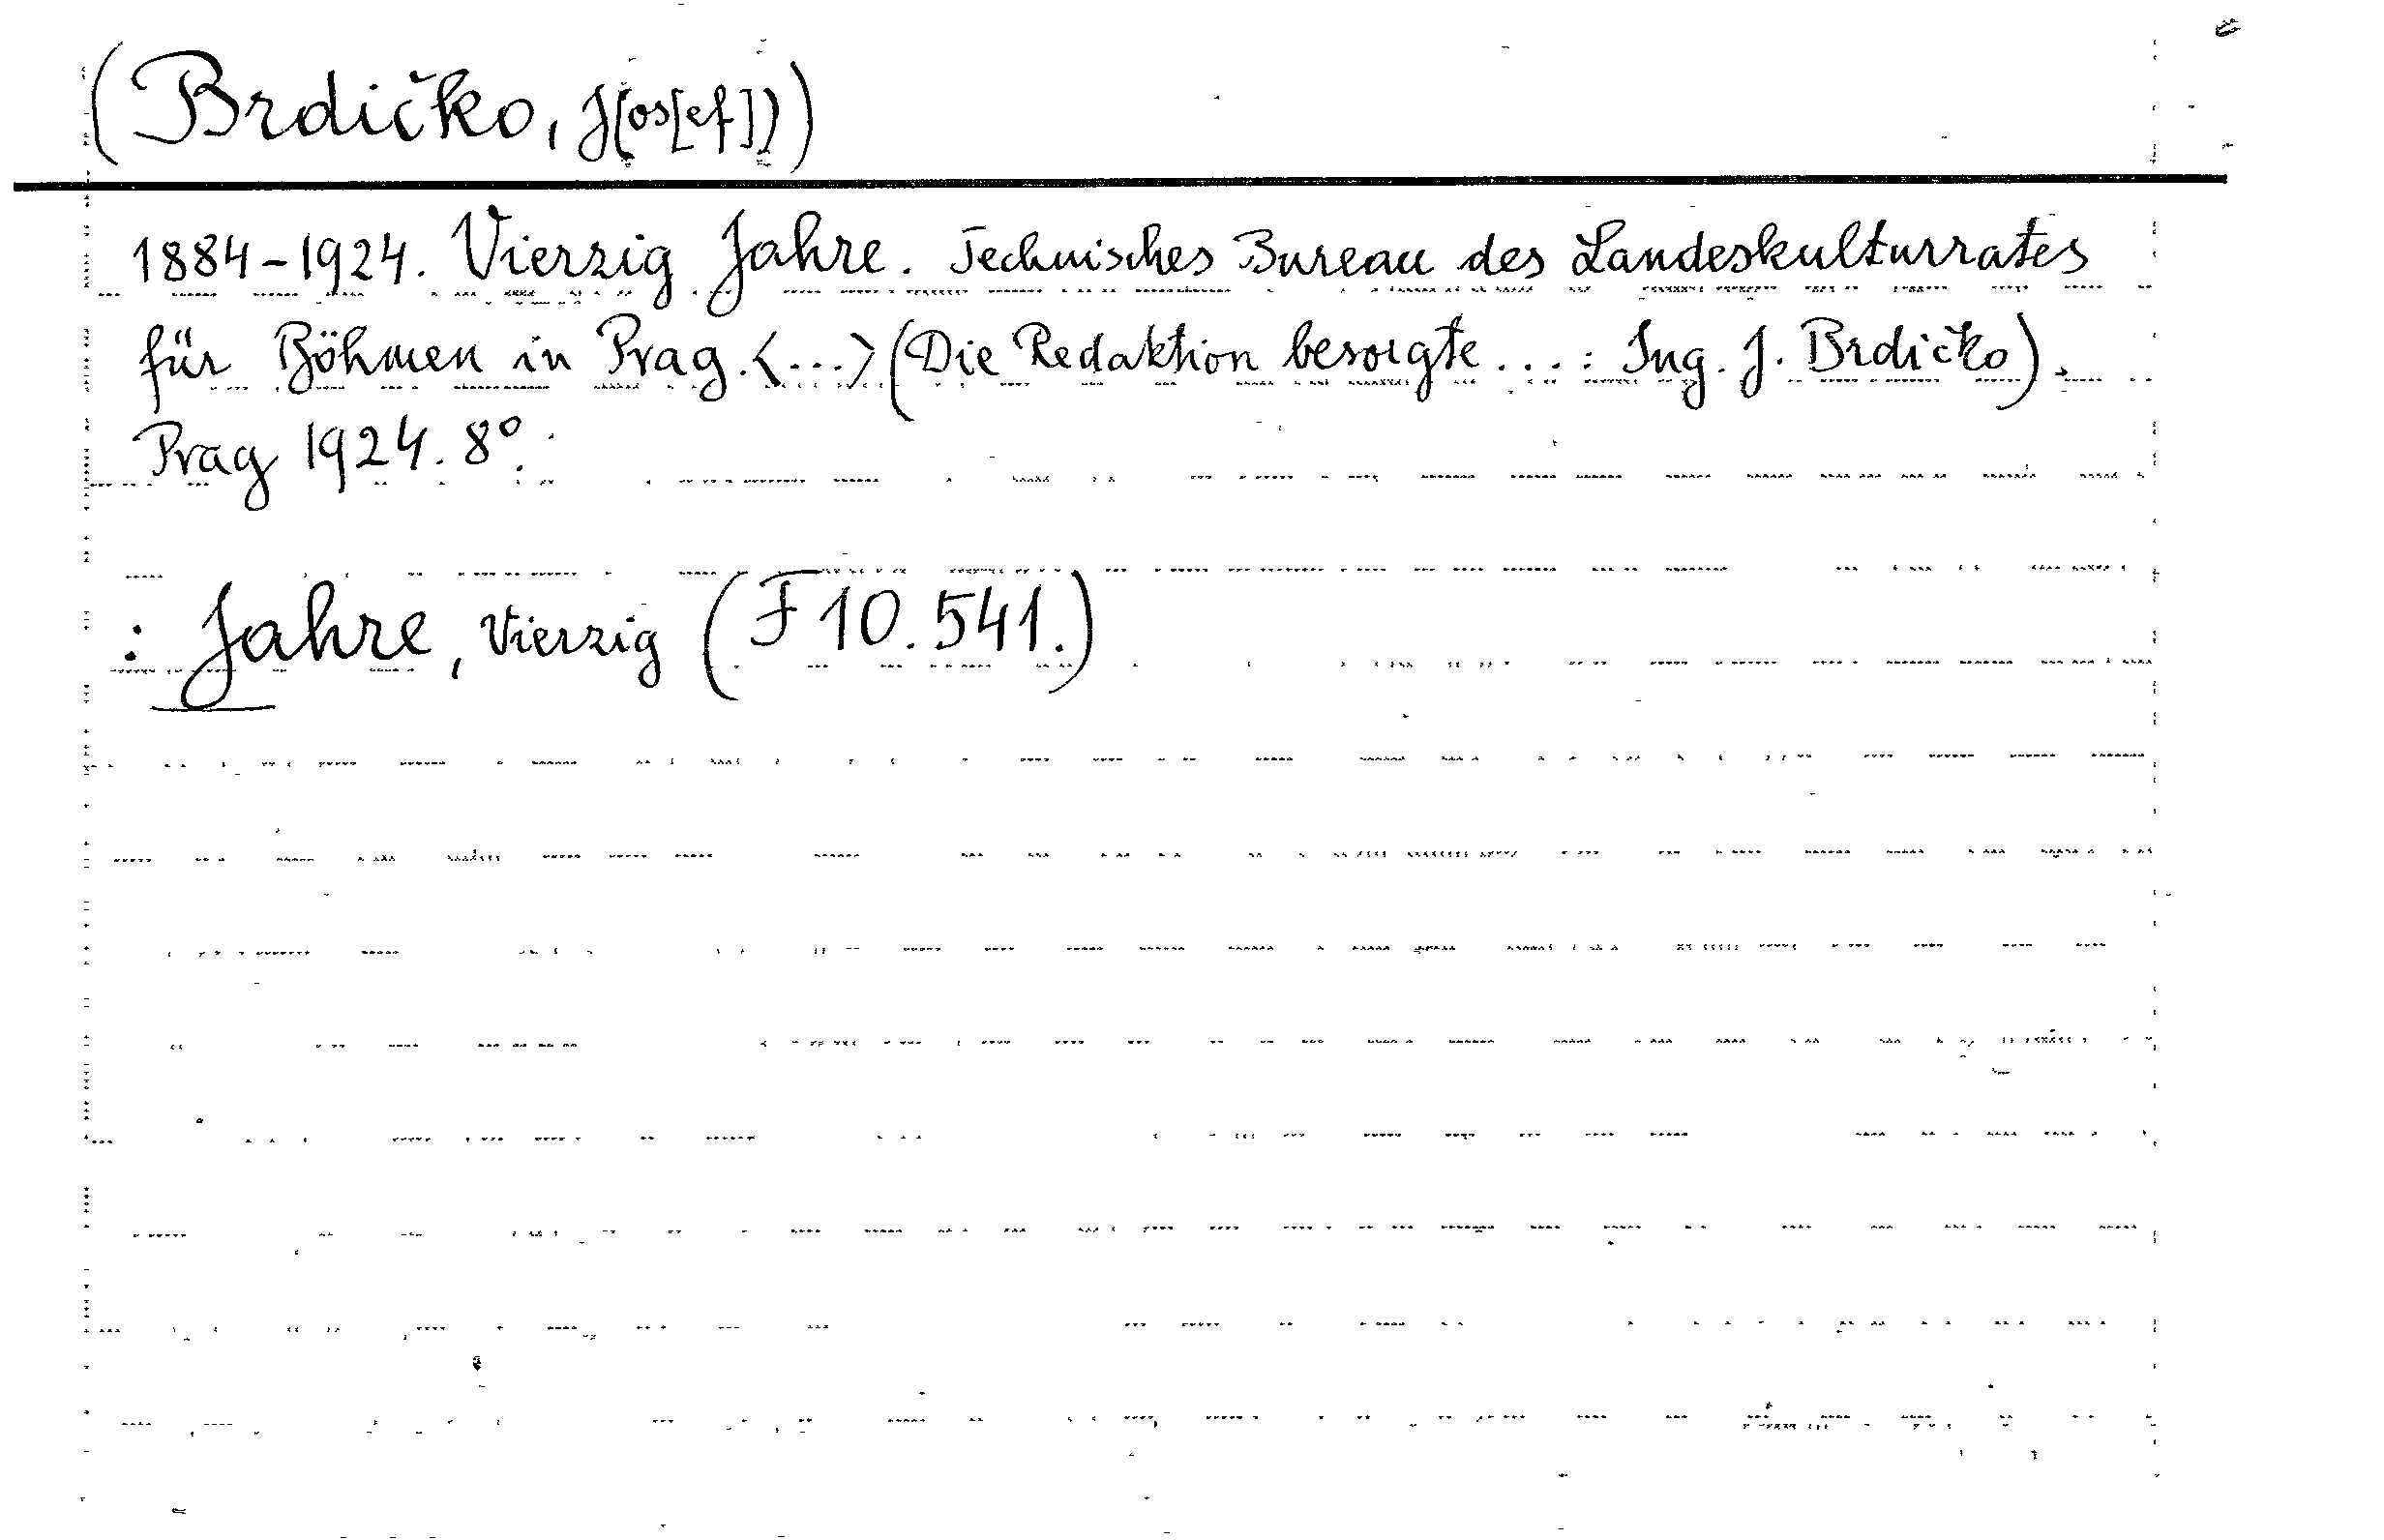 (Brdičko, J(os[ef]))
1884-1924. Vierzig Jahre. Technisches Bureau des Landeskulturrates
für Böhmen in Prag. <...> (Die Redaktion besorgte ...: Ing. J. Brdičko).
Prag 1924. 8°.
: Jahre, Vierzig (F 10.541.)